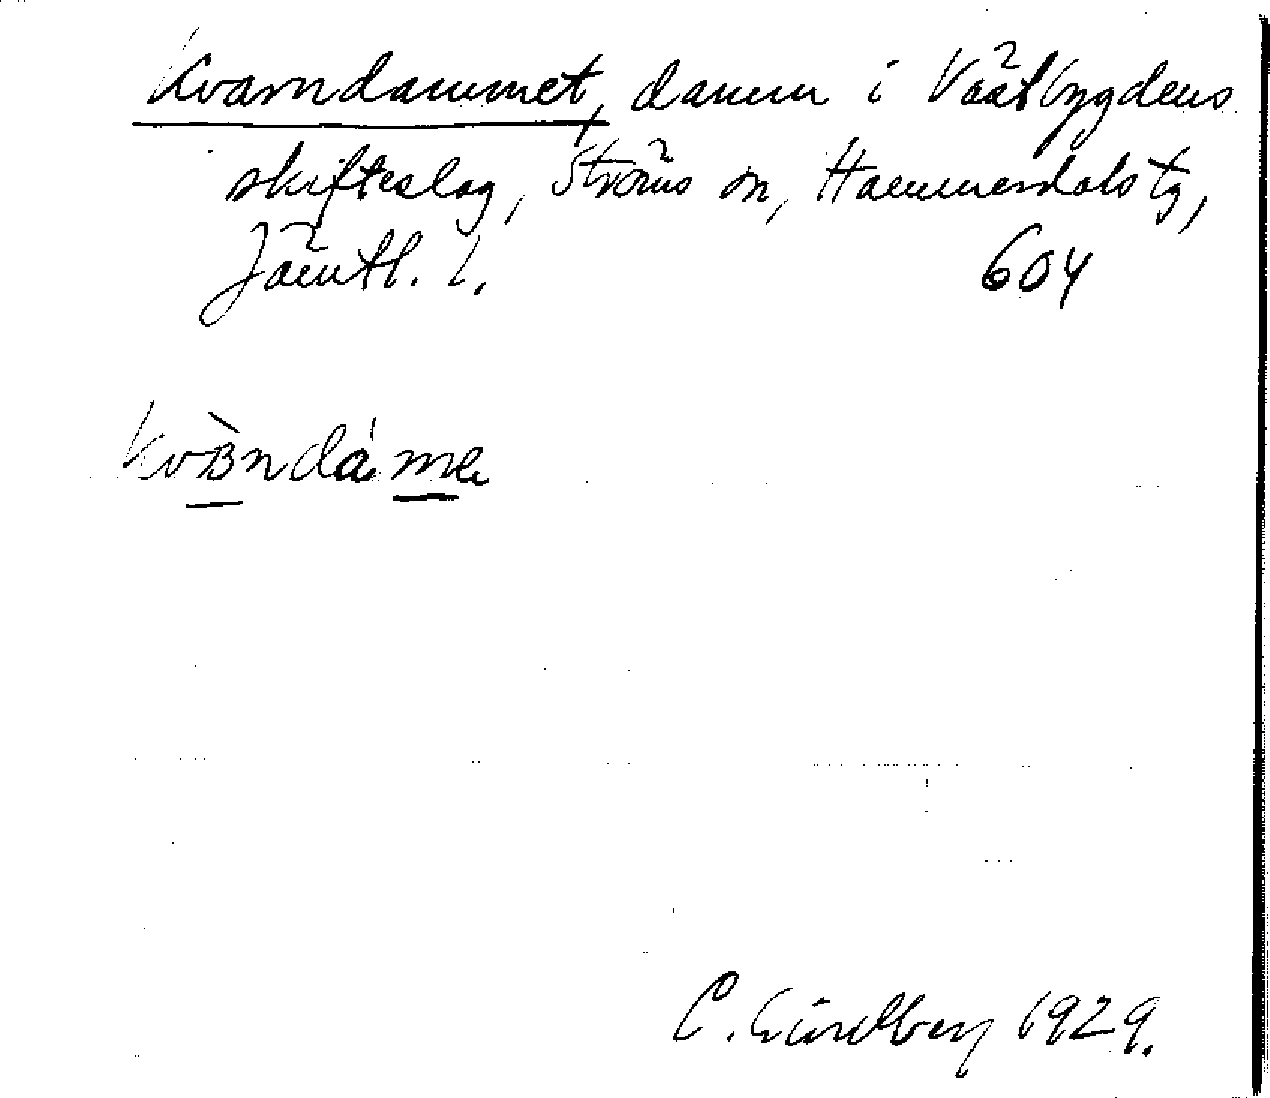 Kvarndammet, damm i Västbygdens
skifteslag, Ströms sn, Hammerdals tg,
Jämtl. l. 604
kvᴃ̀ndáme
C. Lindberg 1929.